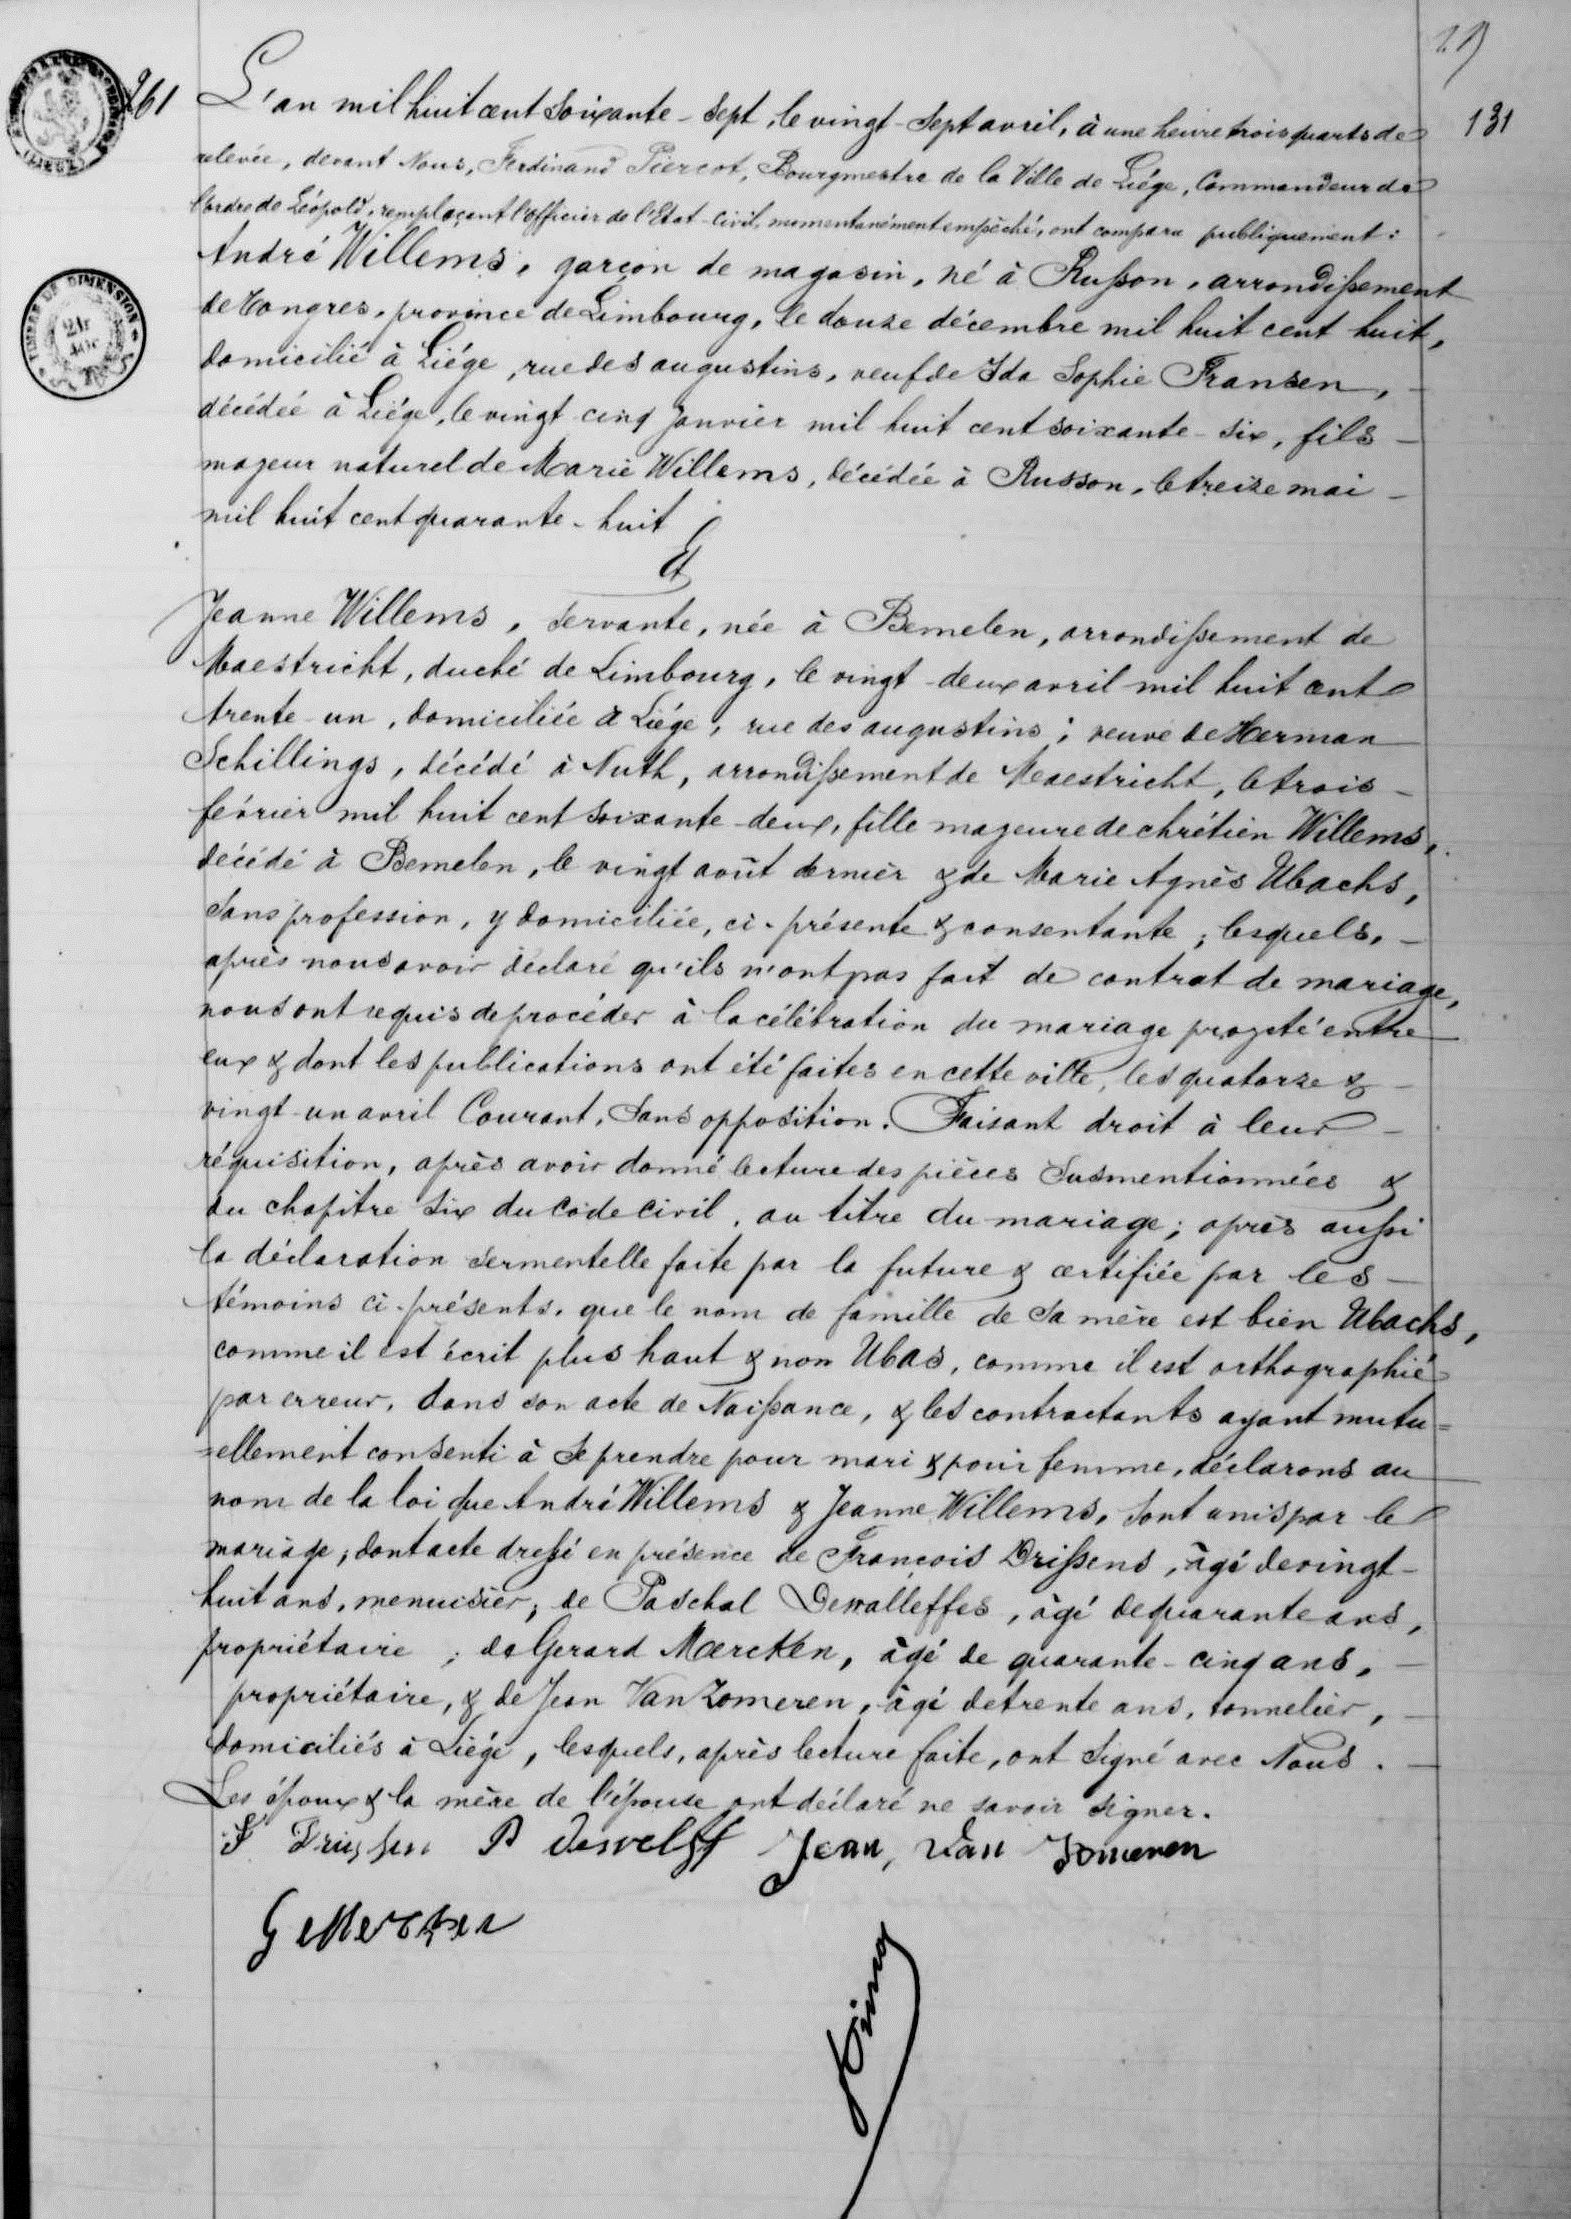 261
131
L'an mil huit cent soixante-sept, le vingt-sept avril, à une heure trois quarts de
relevée, devant Nous, Ferdinand Piercot, Bourgmestre de la Ville de Liége, Commandeur de
l'ordre de Léopold, remplaçant l'officier de l'Etat-civil, momentanément empêché, ont comparu publiquement:
André Willems, garçon de magasin, né à Russon, arrondissement
de Tongres, province de Limbourg, le douze décembre mil huit cent huit,
domicilié à Liége, rue des augustins, veuf de Ida Sophie Fransen,
décédée à Liége, le vingt-cinq Janvier mil huit cent soixante-six, fils
majeur naturel de Marie Willems, décédée à Russon, le treize mai
mil huit cent quarante-huit;
Et
Jeanne Willems, servante, née à Bemelen, arrondissement de
Maestricht, duché de Limbourg, le vingt-deux avril mil huit cent
trente-un, domiciliée à Liége, rue des augustins; veuve de Herman
Schillings, décédé à Nuth, arrondissement de Maestricht, le trois
février mil huit cent soixante-deux, fille majeure de chrétien Willems,
décédé à Bemelen, le vingt août dernier & de Marie Agnès Ubachs,
sans profession, y domiciliée, ci-présente & consentante; lesquels,
après nous avoir déclaré qu'ils n'ont pas fait de contrat de mariage,
nous ont requis de procéder à la célébration du mariage projeté entre
eux & dont les publications ont été faites en cette ville, les quatorze &
vingt-un avril Courant, sans opposition. Faisant droit à leur
réquisition, après avoir donné lecture des pièces susmentionnées &
du chapitre six du Code civil, au titre du mariage; après aussi
la déclaration sermentelle faite par la future & certifiée par les
témoins ci-présents, que le nom de famille de sa mère est bien Ubachs,
comme il est écrit plus haut & non Ubas, comme il est orthographié
par erreur, dans son acte de Naissance, & les contractants ayant mutu=
=ellement consenti à se prendre pour mari & pour femme, déclarons au
nom de la loi que André Willems & Jeanne Willems, sont unis par le
mariage; dont acte dressé en présence de François Drissens, âgé de vingt-
huit ans, menuisier; de Paschal Dewalleffes, âgé de quarante ans,
propriétaire; de Gerard Mercken, âgé de quarante-cinq ans,
propriétaire, & de Jean Van Zomeren, âgé de trente ans, tonnelier,
domiciliés à Liége, lesquels, après lecture faite, ont signé avec Nous.
Les époux & la mère de l'épouse ont déclaré ne savoir signer.
Jean, Van Zomeren